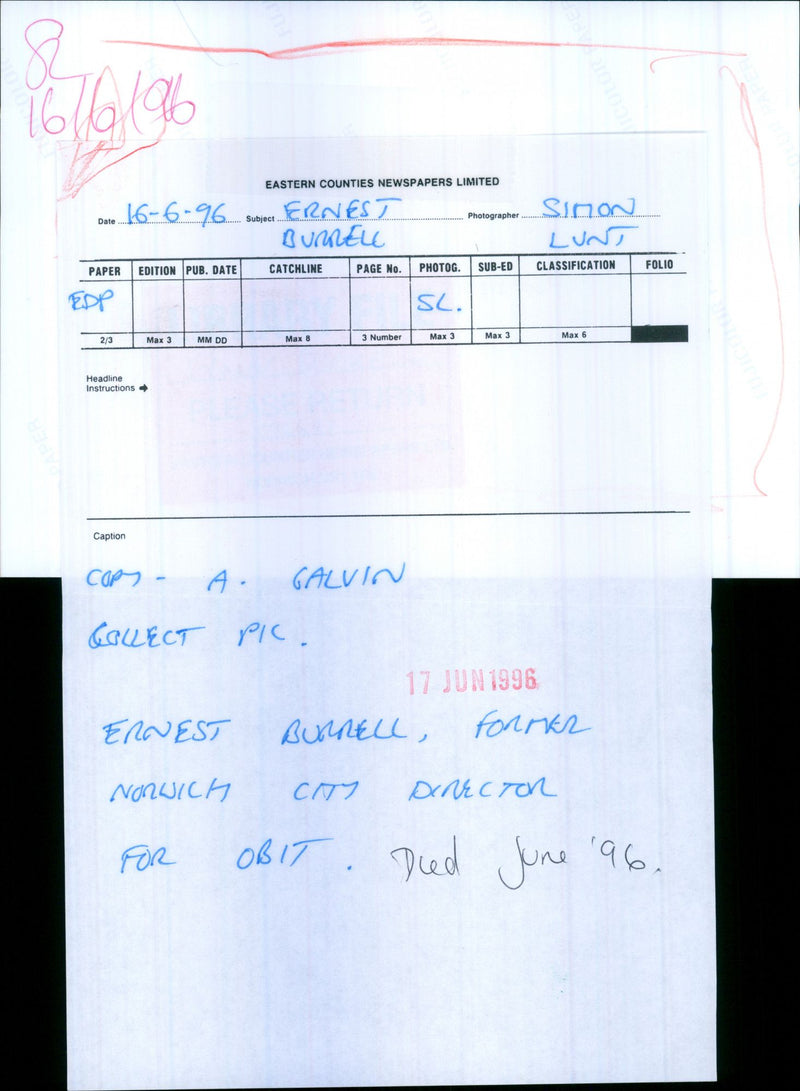 SL
16/6/96
EASTERN COUNTIES NEWSPAPERS LIMITED
Date 16-6-96 Subject ERNEST Photographer SIMON
BURRELL LUNT
PAPER EDITION PUB. DATE CATCHLINE PAGE No. PHOTOG. SUB-ED CLASSIFICATION FOLIO
EDP SL.
2/3 Max 3 MM DD Max 8 3 Number Max 3 Max 3 Max 6
Headline
Instructions
Caption
COPY - A. GALVIN
COLLECT PIC.
17 JUN 1996
ERNEST BURRELL, FORMER
NORWICH CITY DIRECTOR
FOR OBIT. Died June '96.